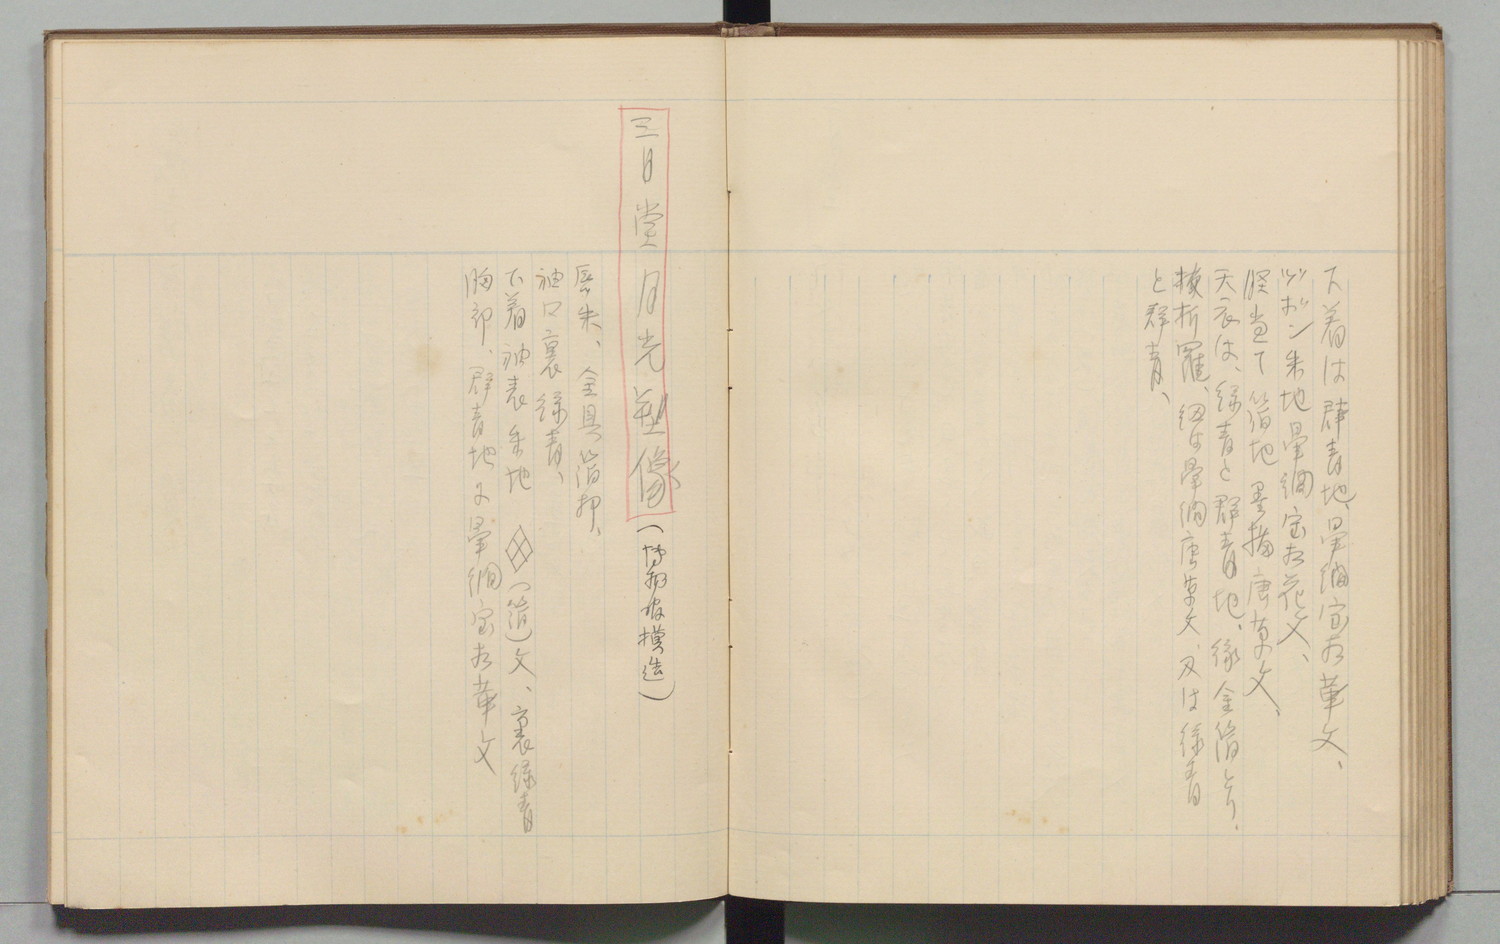 下着は群青地、暈繝宝相華文、
ヅボン朱地暈繝宝相花文、
脛当て箔地墨描唐草文、
天衣は、緑青と群青地、縁金箔とり、
折羅、紐は暈繝唐草文、又は緑青
と群青、
三月堂月光塑像（博物館模造）
唇朱、金具箔押、
袖口裏緑青、
下着袖表朱地（箔）文、裏緑青
胸部、群青地に暈繝宝相華文